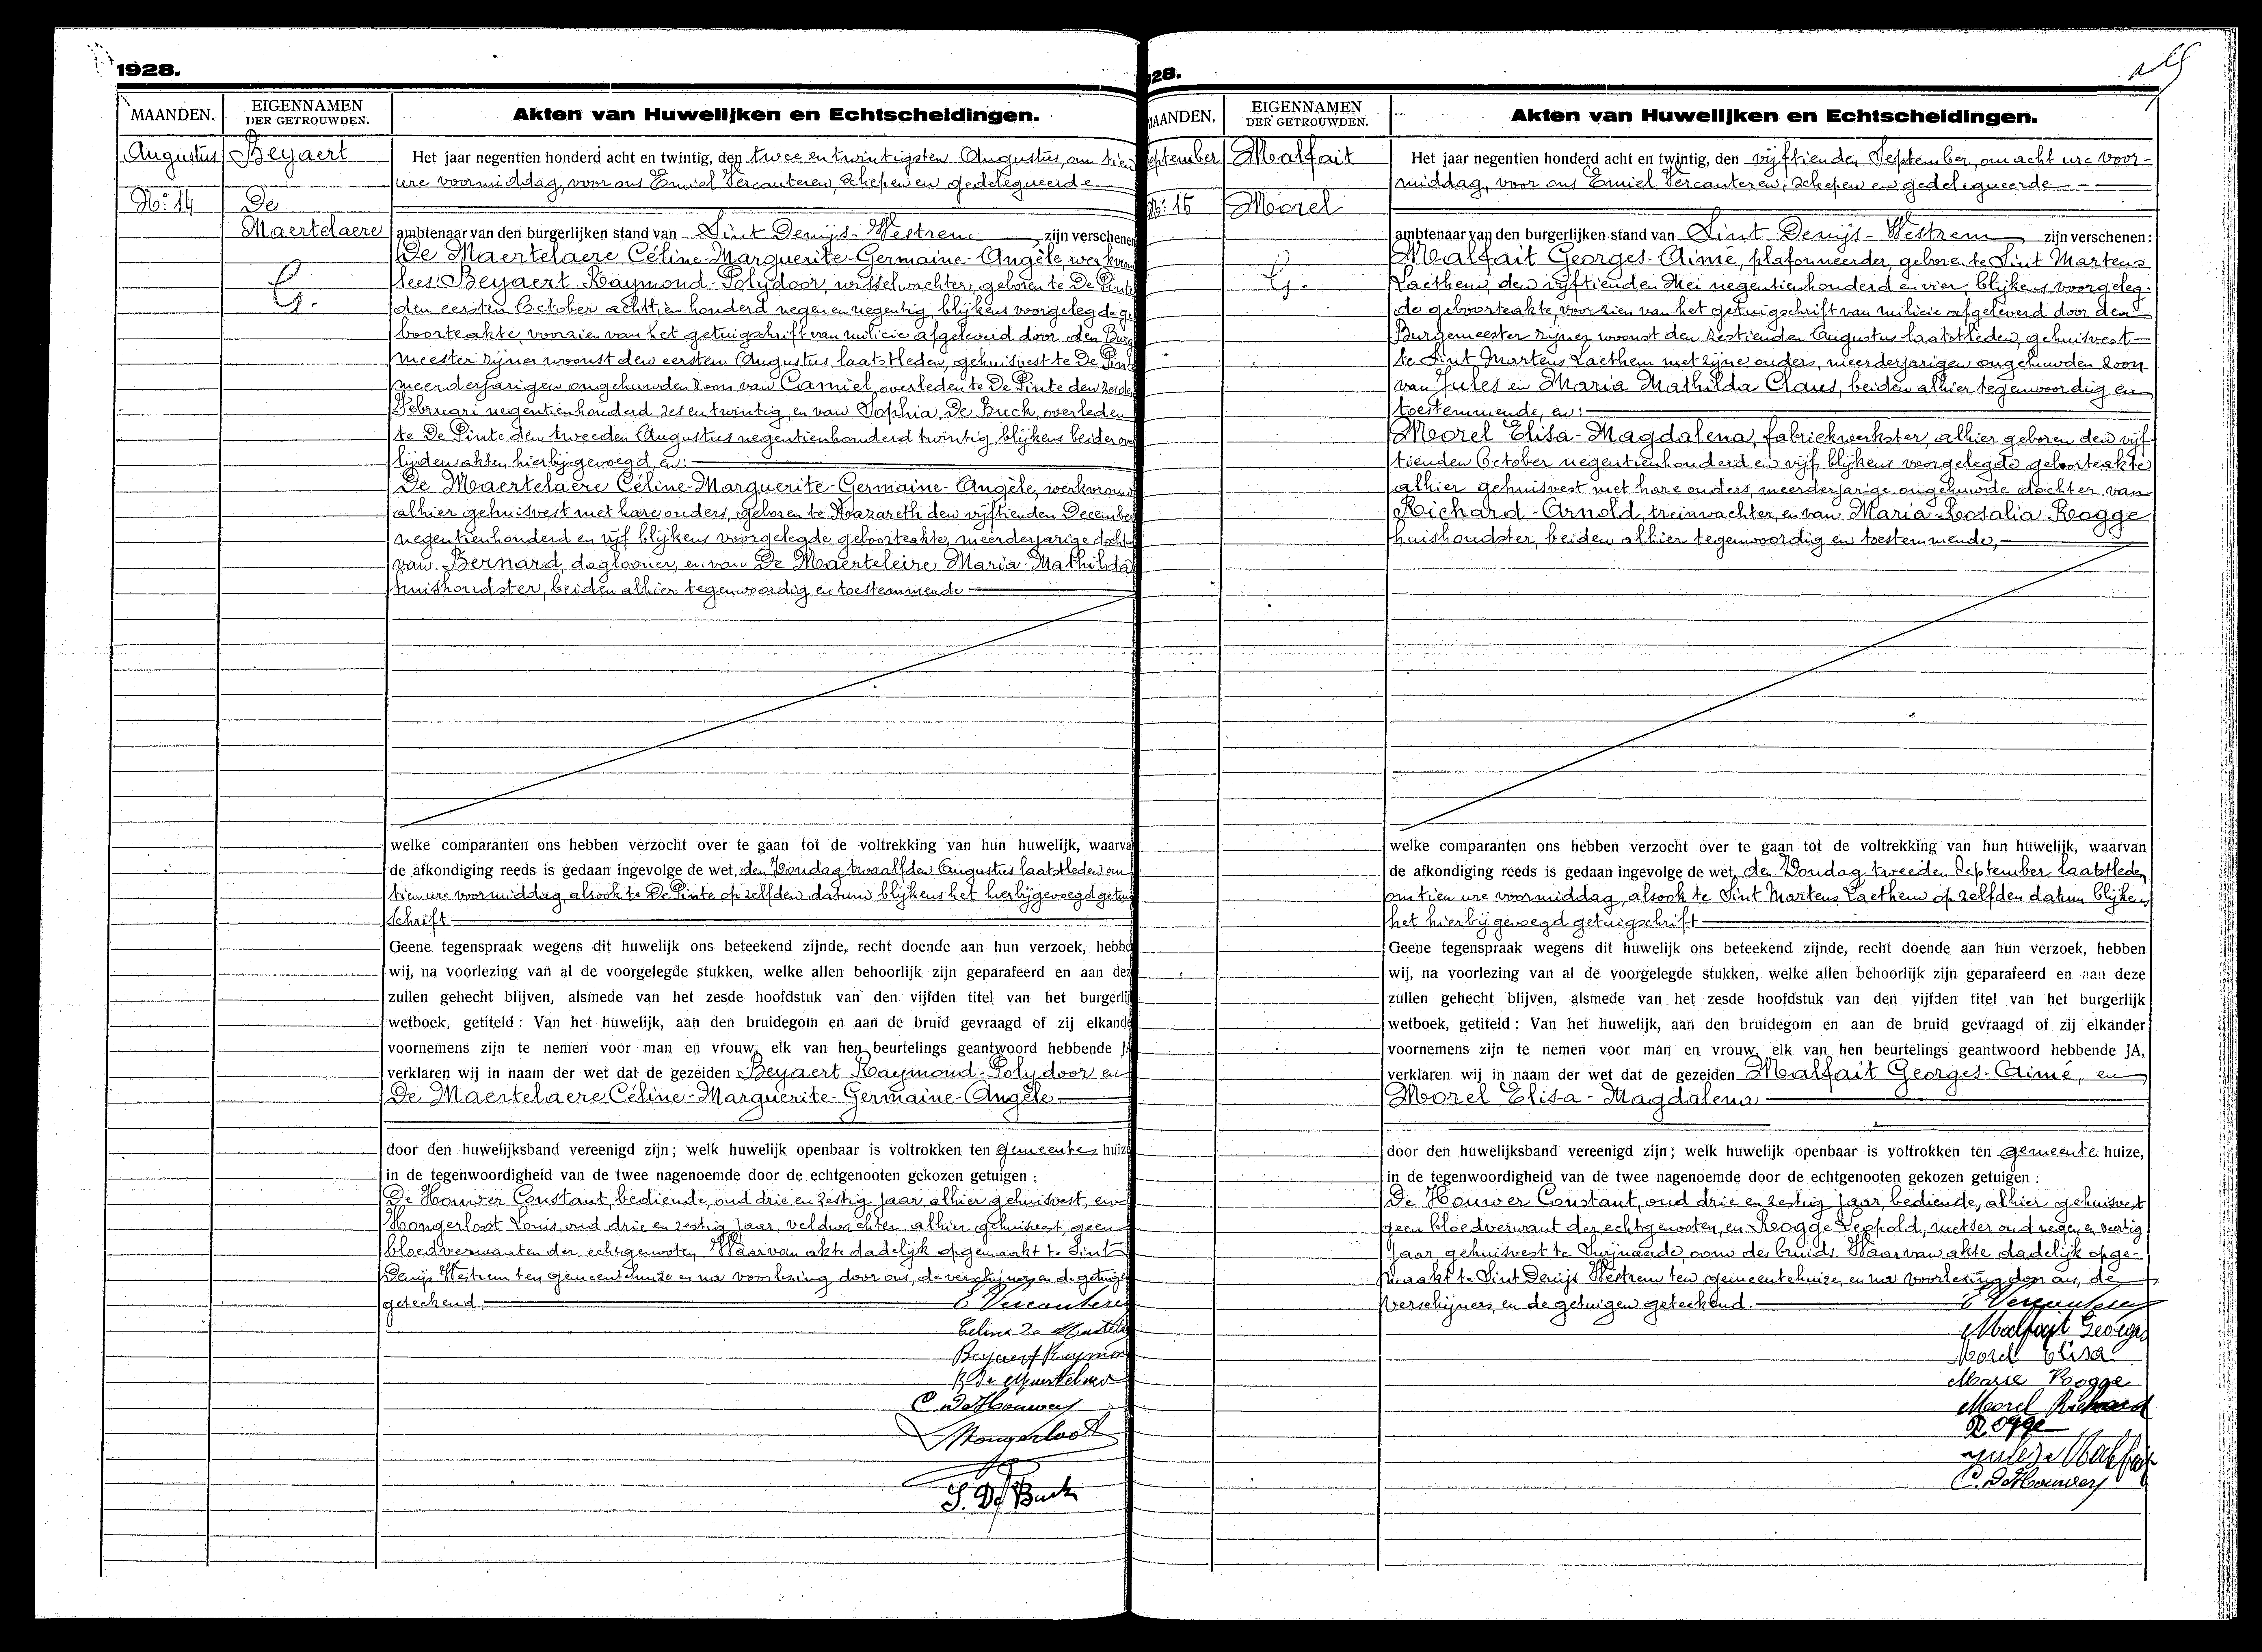 1928.
MAANDEN.
EIGENNAMEN
DER GETROUWDEN.
Akten van Huwelijken en Echtscheidingen.
Augustus
Beyaert
No: 14
De
Maertelaere
G.
Het jaar negentien honderd acht en twintig, den twee en twintigsten Augustus, om tien
ure voormiddag, voor ons Emiel Vercauteren, Schepen en gedelegueerde
ambtenaar van den burgerlijken stand van Sint Denijs-Westrem zijn verschenen
De Maertelaere Céline-Marguerite-Germaine-Angèle, werkvrouw
lees: Beyaert Raymond-Polydoor, wisselwachter, geboren te De Pinte
den eersten October achttien honderd negen en negentig, blijkens voorgelegde ge
boorteakte, voorzien van het getuigschrift van milicie afgeleverd door den Burg
meester zijner woonst den eersten Augustus laatstleden, gehuisvest te De Pinte
meerderjarigen ongehuwden zoon van Camiel, overleden te De Pinte den zesden
Februari negentienhonderd zes en twintig, en van Sophia De Buck, overleden
te De Pinte den tweeden Augustus negentienhonderd twintig, blijkens beider over
lijdensakten hierbijgevoegd, en:
De Maertelaere Céline-Marguerite-Germaine-Angèle, werkvrouw
alhier gehuisvest met hare ouders, geboren te Nazareth den vijftienden December
negentienhonderd en vijf blijkens voorgelegde geboorteakte, meerderjarige dochter
van Bernard, daglooner, en van De Maerteleire Maria-Mathilda
huishoudster, beiden alhier tegenwoordig en toestemmende
welke comparanten ons hebben verzocht over te gaan tot de voltrekking van hun huwelijk, waarva
de afkondiging reeds is gedaan ingevolge de wet, den Zondag twaalfden Augustus laatstleden om
tien ure voormiddag, alsook te De Pinte op zelfden datum blijkens het hierbijgevoegd getuig
schrift
Geene tegenspraak wegens dit huwelijk ons beteekend zijnde, recht doende aan hun verzoek, hebbe
wij, na voorlezing van al de voorgelegde stukken, welke allen behoorlijk zijn geparafeerd en aan dez
zullen gehecht blijven, alsmede van het zesde hoofdstuk van den vijfden titel van het burgerlij
wetboek, getiteld : Van het huwelijk, aan den bruidegom en aan de bruid gevraagd of zij elkande
voornemens zijn te nemen voor man en vrouw, elk van hen beurtelings geantwoord hebbende JA
verklaren wij in naam der wet dat de gezeiden Beyaert Raymond-Polydoor en
De Maertelaere Céline-Marguerite-Germaine-Angèle
door den huwelijksband vereenigd zijn; welk huwelijk openbaar is voltrokken ten gemeente huize
in de tegenwoordigheid van de twee nagenoemde door de echtgenooten gekozen getuigen :
De Houwer Constant, bediende, oud drie en zestig jaar, alhier gehuisvest, en
Hongerloot Louis, oud drie en zestig jaar, veldwachter, alhier gehuisvest, geen
bloedverwanten der echtgenooten, Waarvan akte dadelijk opgemaakt te Sint
Denijs Westrem ten gemeentehuize en na voorlezing door ons, de verschijners en de getuigen
geteekend.
E Vercauteren
Celina De Maertela
Beyaert Raymon
B De Maertelaere
C. De Houwer
Hongerloot
S. De Buck
28.
MAANDEN.
EIGENNAMEN
DER GETROUWDEN.
Akten van Huwelijken en Echtscheidingen.
eptember
Malfait
No: 15
Morel
G.
Het jaar negentien honderd acht en twintig, den vijftienden September, om acht ure voor-
middag, voor ons Emiel Vercauteren, Schepen en gedelegueerde
ambtenaar van den burgerlijken stand van Sint Denijs-Westrem zijn verschenen :
Malfait Georges-Aimé, plafonneerder, geboren te Sint Martens
Laethem, den vijftienden Mei negentienhonderd en vier, blijkens voorgeleg-
de geboorteakte, voorzien van het getuigschrift van milicie afgeleverd door den
Burgemeester zijner woonst den zestienden Augustus laatstleden, gehuisvest
te Sint Martens Laethem met zijne ouders, meerderjarigen ongehuwden zoon
van Jules en Maria Mathilda Claus, beiden alhier tegenwoordig en
toestemmende, en:
Morel Elisa-Magdalena, fabriekwerkster, alhier geboren den vijf
tienden October negentienhonderd en vijf, blijkens voorgelegde geboorteakte
alhier gehuisvest met hare ouders, meerderjarige ongehuwde dochter van
Richard-Arnold, treinwachter, en van Maria-Rosalia Rogge
huishoudster, beiden alhier tegenwoordig en toestemmende,
welke comparanten ons hebben verzocht over te gaan tot de voltrekking van hun huwelijk, waarvan
de afkondiging reeds is gedaan ingevolge de wet, den Zondag tweeden September laatstleden
om tien ure voormiddag, alsook te Sint Martens Laethem op zelfden datum blijkens
het hierbijgevoegd getuigschrift
Geene tegenspraak wegens dit huwelijk ons beteekend zijnde, recht doende aan hun verzoek, hebben
wij, na voorlezing van al de voorgelegde stukken, welke allen behoorlijk zijn geparafeerd en aan deze
zullen gehecht blijven, alsmede van het zesde hoofdstuk van den vijfden titel van het burgerlijk
wetboek, getiteld : Van het huwelijk, aan den bruidegom en aan de bruid gevraagd of zij elkander
voornemens zijn te nemen voor man en vrouw, elk van hen beurtelings geantwoord hebbende JA,
verklaren wij in naam der wet dat de gezeiden Malfait Georges-Aimé, en
Morel Elisa-Magdalena
door den huwelijksband vereenigd zijn; welk huwelijk openbaar is voltrokken ten gemeente huize,
in de tegenwoordigheid van de twee nagenoemde door de echtgenooten gekozen getuigen :
De Houwer Constant, oud drie en zestig jaar, bediende, alhier gehuisvest
geen bloedverwant der echtgenooten, en Rogge Leopold, metser oud negen en veertig
jaar, gehuisvest te Zwijnaarde, oom der bruid. Waarvan akte dadelijk opge-
maakt te Sint Denijs Westrem ten gemeentehuize, en na voorlezing door ons, de
verschijners, en de getuigen geteekend.
E Vercauteren
Malfait Georges
Morel Elisa
Marie Rogge
Morel Richard
Rogge
Jules Malfait
C. De Houwer